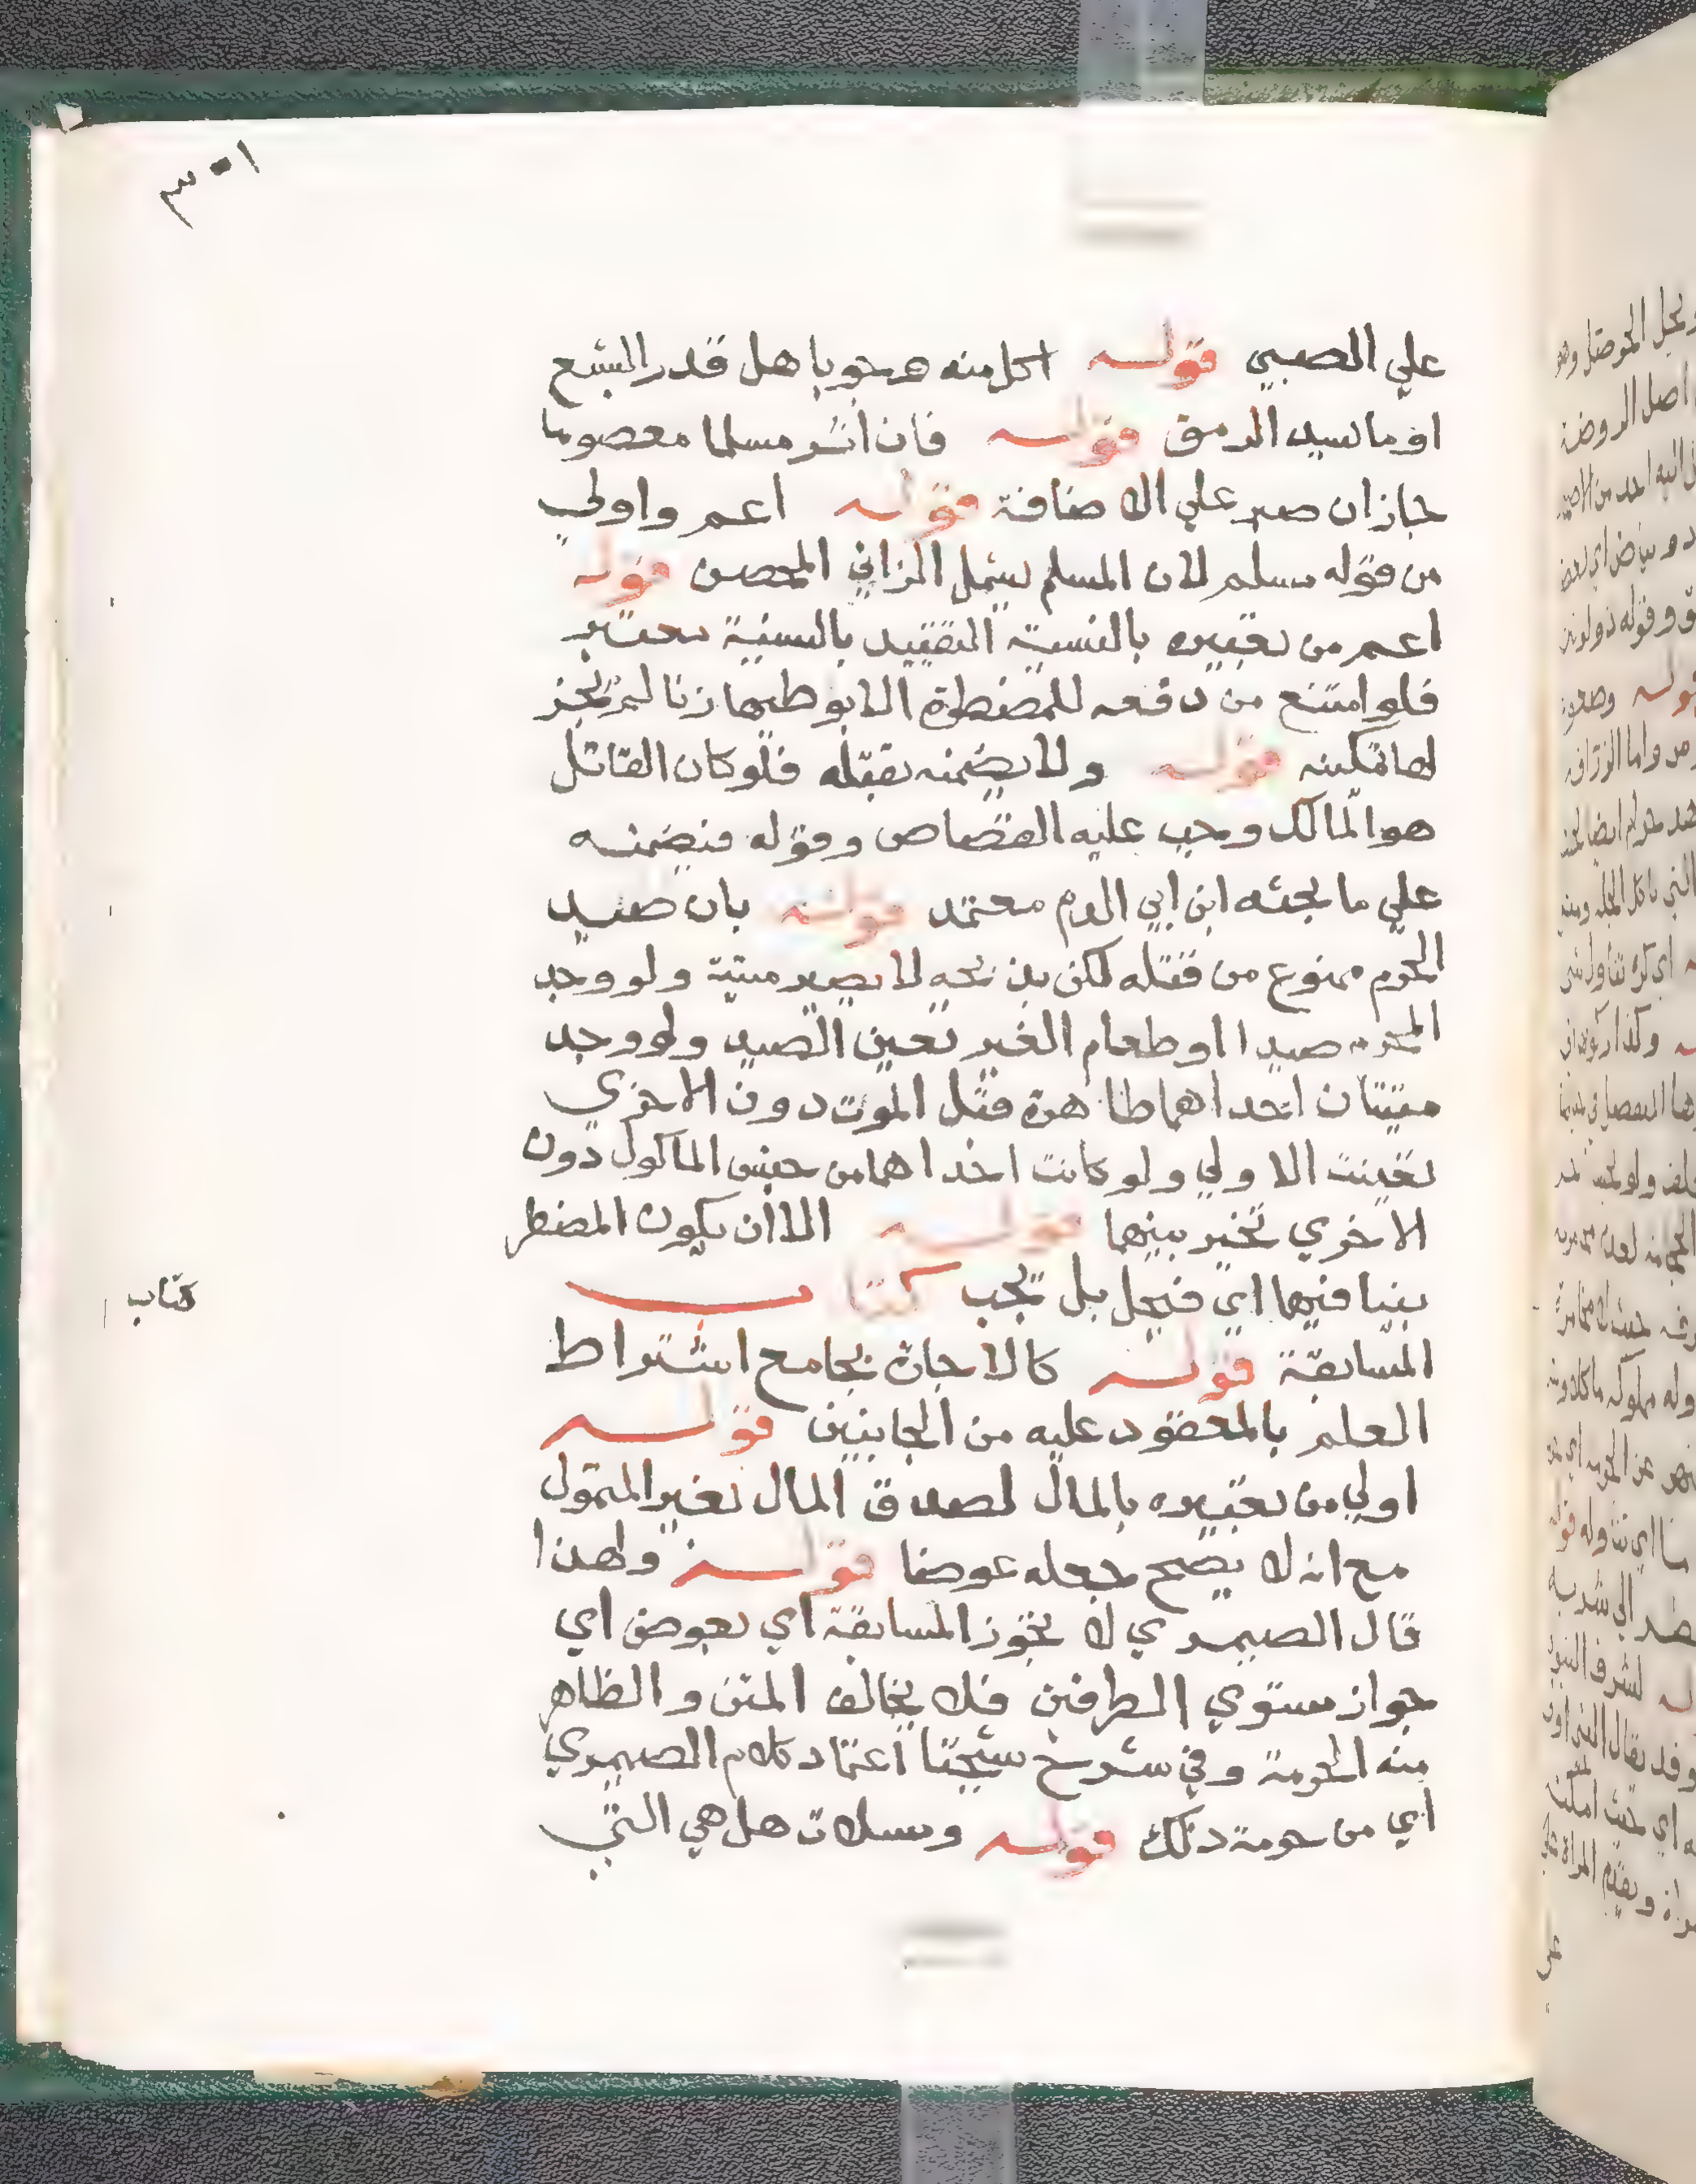 ٣٠١
علي الصبي قوله اكل منه وجوبا هل قدر الشبع
او ما يسد الرمق قوله فان اثر مسلما معصوما
جاز ان صبر علي الاضافة قوله اعم واولي
من قوله مسلم لان المسلم يشمل الزاني المحصن قوله
اعم من تعبيره بالنسيئة التقييد بالنسيئة معتبر
فلو امتنع من دفعه للمضطرة الا بوطيها زنا لم يجز
لها تمكينه قوله ولا يضمنه بقتله فلو كان القاتل
هو المالك وجب عليه القصاص وقوله فيضمنه
علي ما بحثه ابن ابي الدم معتمد قوله بان صيد
المحرم ممنوع من قتله لكن بذبحه لا يصير ميتة ولو وجد
المحرم صيدا او طعام الغير تعين الصيد ولو وجد
ميتتان احداهما طاهرة قبل الموت دون الاخري
تعينت الاولي ولو كانت احداهما من جنس الماكول دون
الاخري تخير بينهما قوله الا ان يكون المضطر
نبيا فيهما اي فيحل بل يجب كتاب
المسابقة قوله كالاجارة بجامع اشتراط
العلم بالمعقود عليه من الجانبين قوله
اولي من تعبيره بالمال لصدق المال بغير المتمول
مع انه لا يصح جعله عوضا قوله ولهذا
قال الصيمري لا يجوز المسابقة اي بعوض اي
جواز مستوي الطرفين فلا يخالف المتن والظاهر
منه الحرمة وفي شرح شيخنا اعتماد كلام الصيمري
اي من حرمة ذلك قوله ومسلات هل هي التي
كتاب